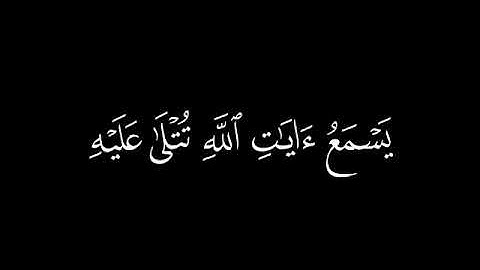 يَسۡمَعُ ءَايَٰتِ ٱللَّهِ تُتۡلَىٰ عَلَيۡهِ